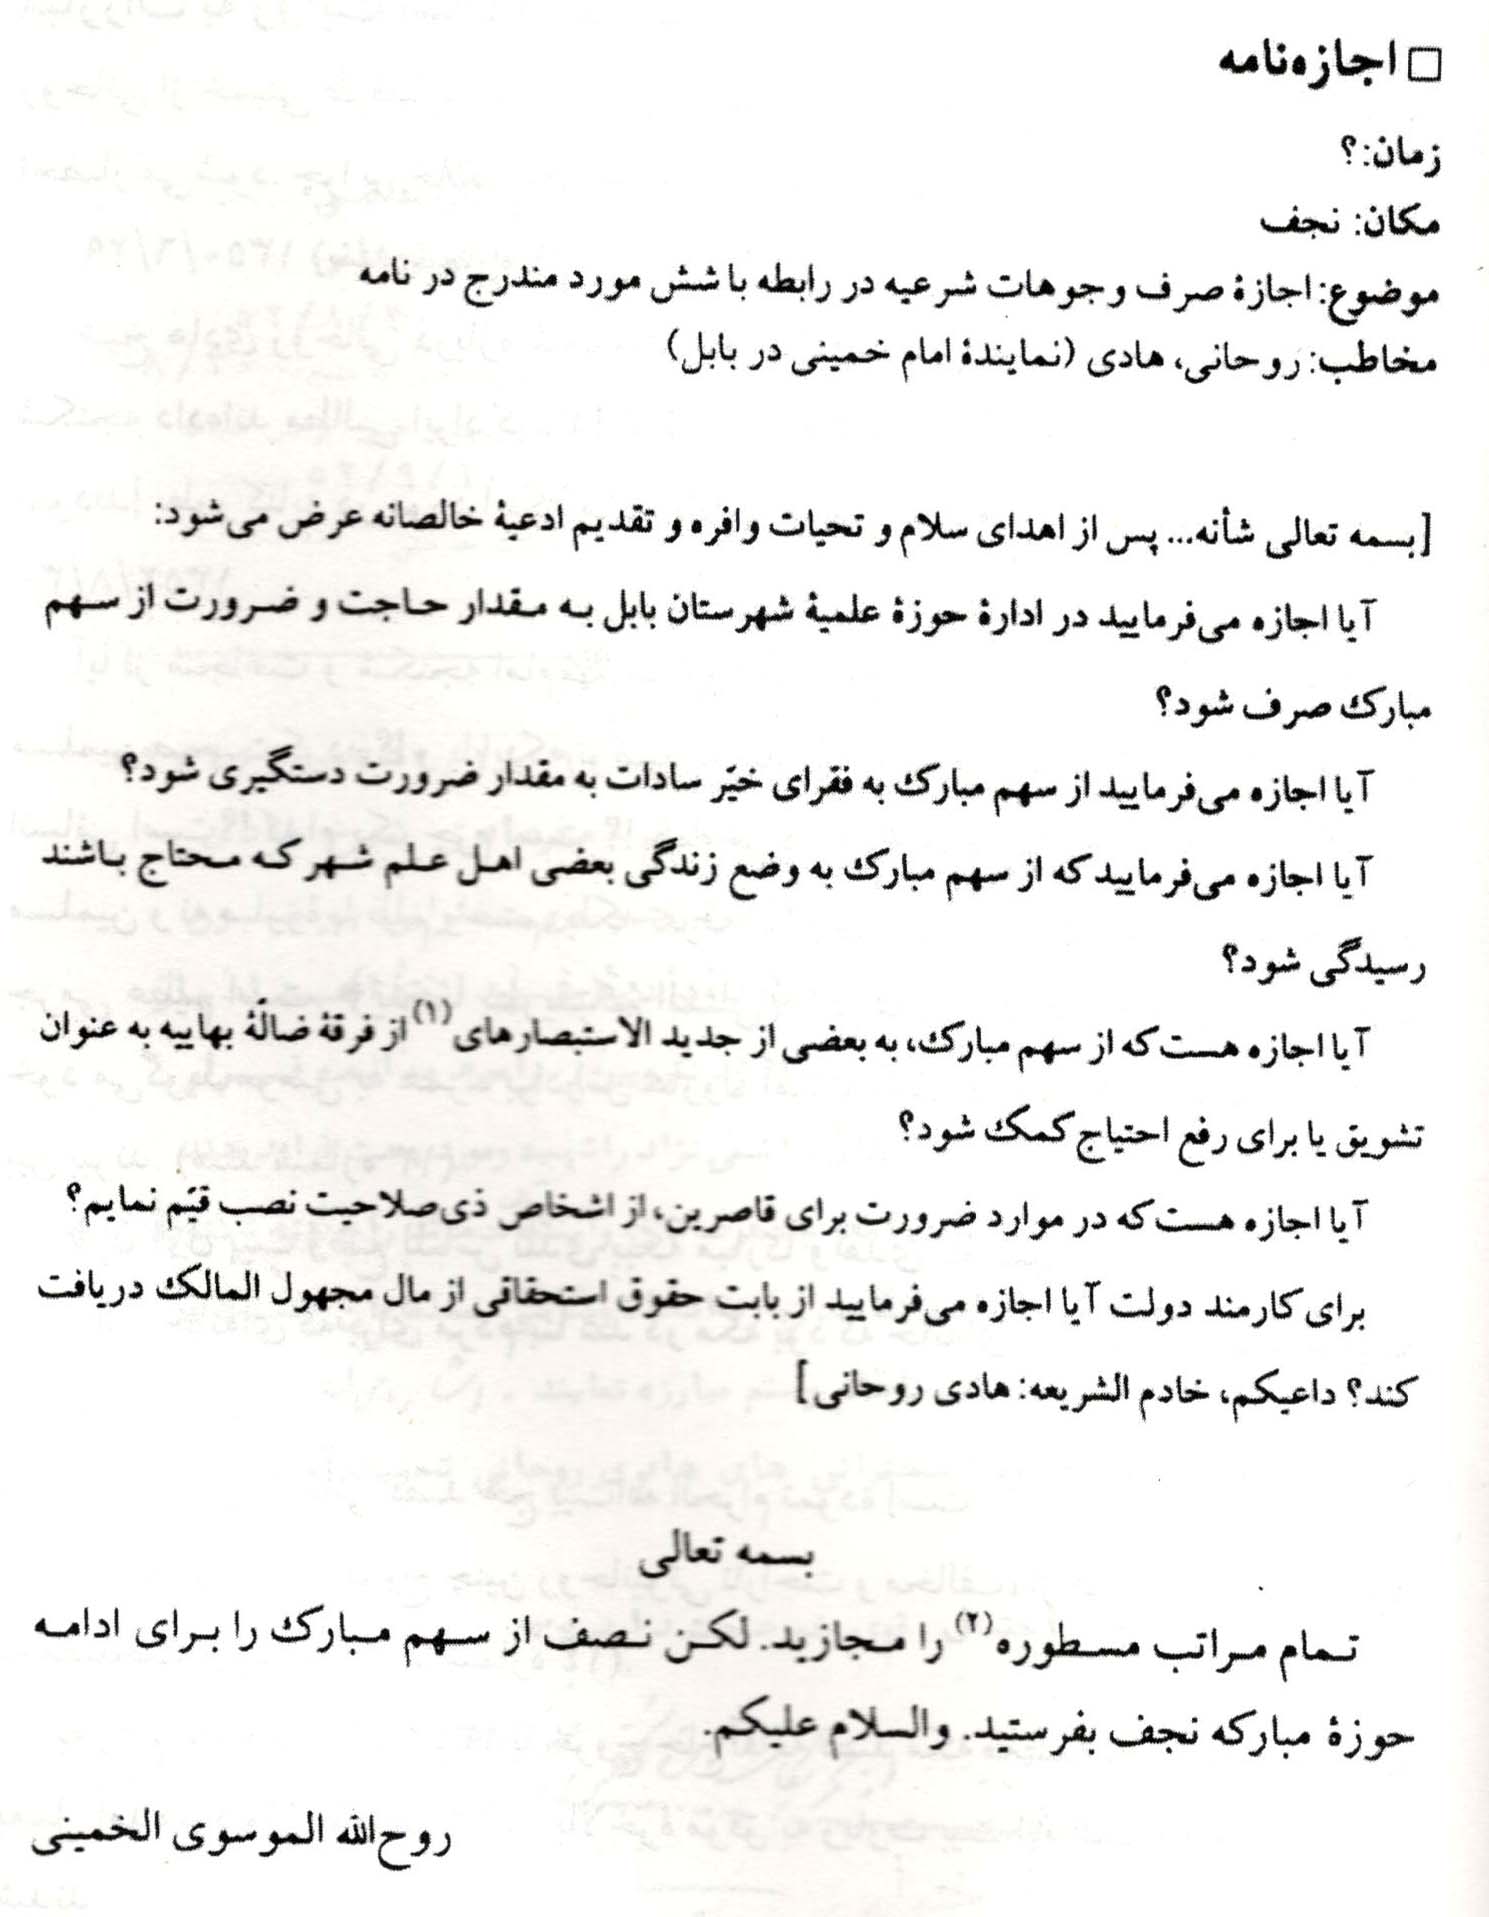 □ اجازه‌نامه
زمان: ؟
مکان: نجف
موضوع: اجازهٔ صرف وجوهات شرعیه در رابطه با شش مورد مندرج در نامه
مخاطب: روحانی، هادی (نمایندهٔ امام خمینی در بابل)
[بسمه تعالی شأنه... پس از اهدای سلام و تحیات وافره و تقدیم ادعیهٔ خالصانه عرض می‌شود:
آیا اجازه می‌فرمایید در ادارهٔ حوزهٔ علمیهٔ شهرستان بابل به مقدار حاجت و ضرورت از سهم
مبارک صرف شود؟
آیا اجازه می‌فرمایید از سهم مبارک به فقرای خیّر سادات به مقدار ضرورت دستگیری شود؟
آیا اجازه می‌فرمایید که از سهم مبارک به وضع زندگی بعضی اهل علم شهر که محتاج باشند
رسیدگی شود؟
آیا اجازه هست که از سهم مبارک، به بعضی از جدید الاستبصارهای(۱) از فرقهٔ ضالّهٔ بهاییه به عنوان
تشویق یا برای رفع احتیاج کمک شود؟
آیا اجازه هست که در موارد ضرورت برای قاصرین، از اشخاص ذی‌صلاحیت نصب قیّم نمایم؟
برای کارمند دولت آیا اجازه می‌فرمایید از بابت حقوق استحقاقی از مال مجهول المالک دریافت
کند؟ داعیکم، خادم الشریعه: هادی روحانی]
بسمه تعالی
تمام مراتب مسطوره(۲) را مجازید. لکن نصف از سهم مبارک را برای ادامه
حوزهٔ مبارکه نجف بفرستید. والسلام علیکم.
روح‌الله الموسوی الخمینی